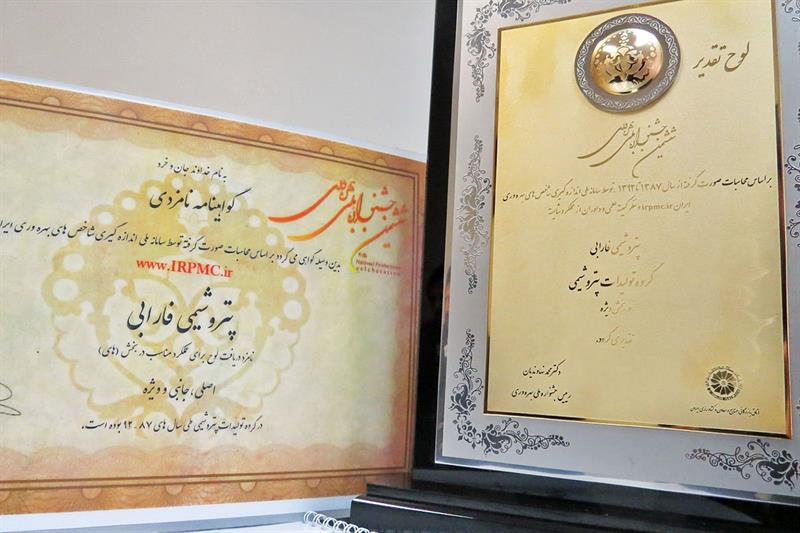 به نام خداوند جان و خرد
گواهینامه نامزدی
ششمین جشنواره ملی بهره وری
6th National Productivity
بدین وسیله گواهی می گردد بر اساس محاسبات صورت گرفته توسط سامانه ملی اندازه گیری شاخص های بهره وری ایران
www.IRPMC.ir
پتروشیمی فارابی
نامزد دریافت لوح برای عملکرد مناسب در بخش (های)
اصلی، جانبی و ویژه
در گروه تولیدات پتروشیمی طی سال های ۸۷ - ۹۲ بوده است.
لوح تقدیر
ششمین جشنواره ملی بهره وری
بر اساس محاسبات صورت گرفته از سال ۱۳۸۷ تا ۱۳۹۲، توسط سامانه ملی اندازه گیری شاخص های بهره وری
ایران irpmc.ir و نظر کمیته علمی و داوران از عملکرد شایسته
پتروشیمی فارابی
گروه تولیدات پتروشیمی
در بخش ویژه
تقدیر می گردد.
دکتر محمد نهاوندیان
رییس جشنواره ملی بهره وری
اتاق بازرگانی، صنایع و معادن و کشاورزی ایران